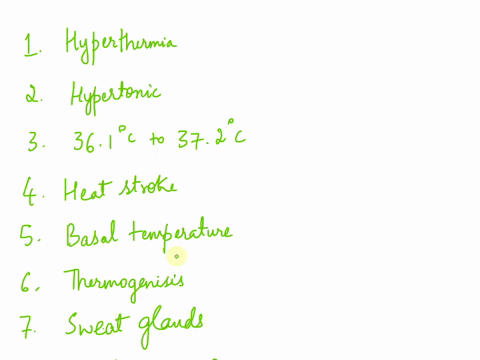 1. Hyperthermia
2. Hypertonic
3. 36.1°C to 37.2°C
4. Heat stroke
5. Basal temperature
6. Thermogenisis
7. Sweat glands